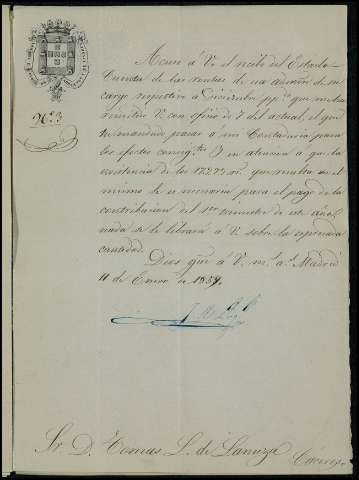 Nº 3
Acuso á V. el recibo del Estado
Cuenta de las rentas de esa admón de su
cargo respectivo á Diciembre pp.do que me ha
remitido V. con oficio de 7 del actual, el que
he mandado pasar a esta Contaduría para
los efectos consig.tes Y en atención á que la
existencia de los 17.273 r.s que resulta en el
mismo se necesitará para el pago de la
contribucion del 1er trimestre de este año,
nada se le librará á V. sobre la espresada
cantidad.
Dios gue á V. m.s a.s Madrid
11 de Enero de 1859.
Sr. D. Tomas L. de Lanuza
Cáceres.